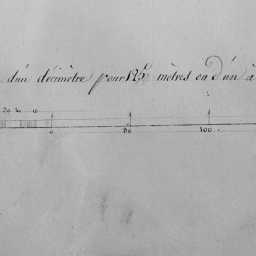 d'un décimètre pour 125 mètres ou d'un à
20 10 0
0 50 100